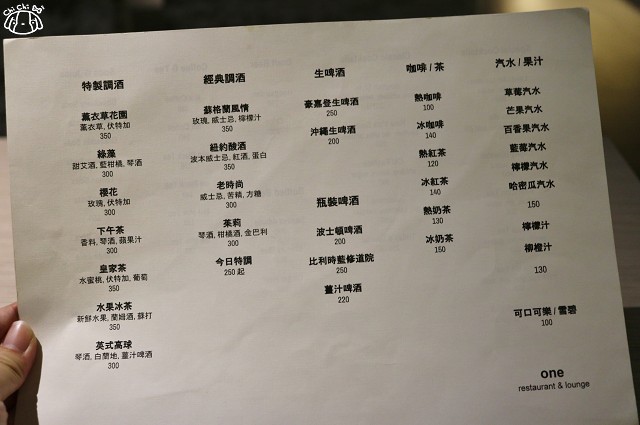 Chi Chi Bo!
特製調酒
薰衣草花園
薰衣草, 伏特加
350
綠藻
甜艾酒, 藍柑橘, 琴酒
300
櫻花
玫瑰, 伏特加
300
下午茶
香料, 琴酒, 蘋果汁
300
皇家茶
水蜜桃, 伏特加, 葡萄
350
水果冰茶
新鮮水果, 蘭姆酒, 蘇打
350
英式高球
琴酒, 白蘭地, 薑汁啤酒
300
經典調酒
蘇格蘭風情
玫瑰, 威士忌, 檸檬汁
350
紐約酸酒
波本威士忌, 紅酒, 蛋白
350
老時尚
威士忌, 苦精, 方糖
300
茱莉
琴酒, 柑橘酒, 金巴利
300
今日特調
250 起
生啤酒
豪嘉登生啤酒
250
沖繩生啤酒
200
瓶裝啤酒
波士頓啤酒
200
比利時藍修道院
250
薑汁啤酒
220
咖啡 / 茶
熱咖啡
100
冰咖啡
140
熱紅茶
120
冰紅茶
140
熱奶茶
130
冰奶茶
150
汽水 / 果汁
草莓汽水
芒果汽水
百香果汽水
藍莓汽水
檸檬汽水
哈密瓜汽水
150
檸檬汁
柳橙汁
130
可口可樂 / 雪碧
100
one
restaurant & lounge